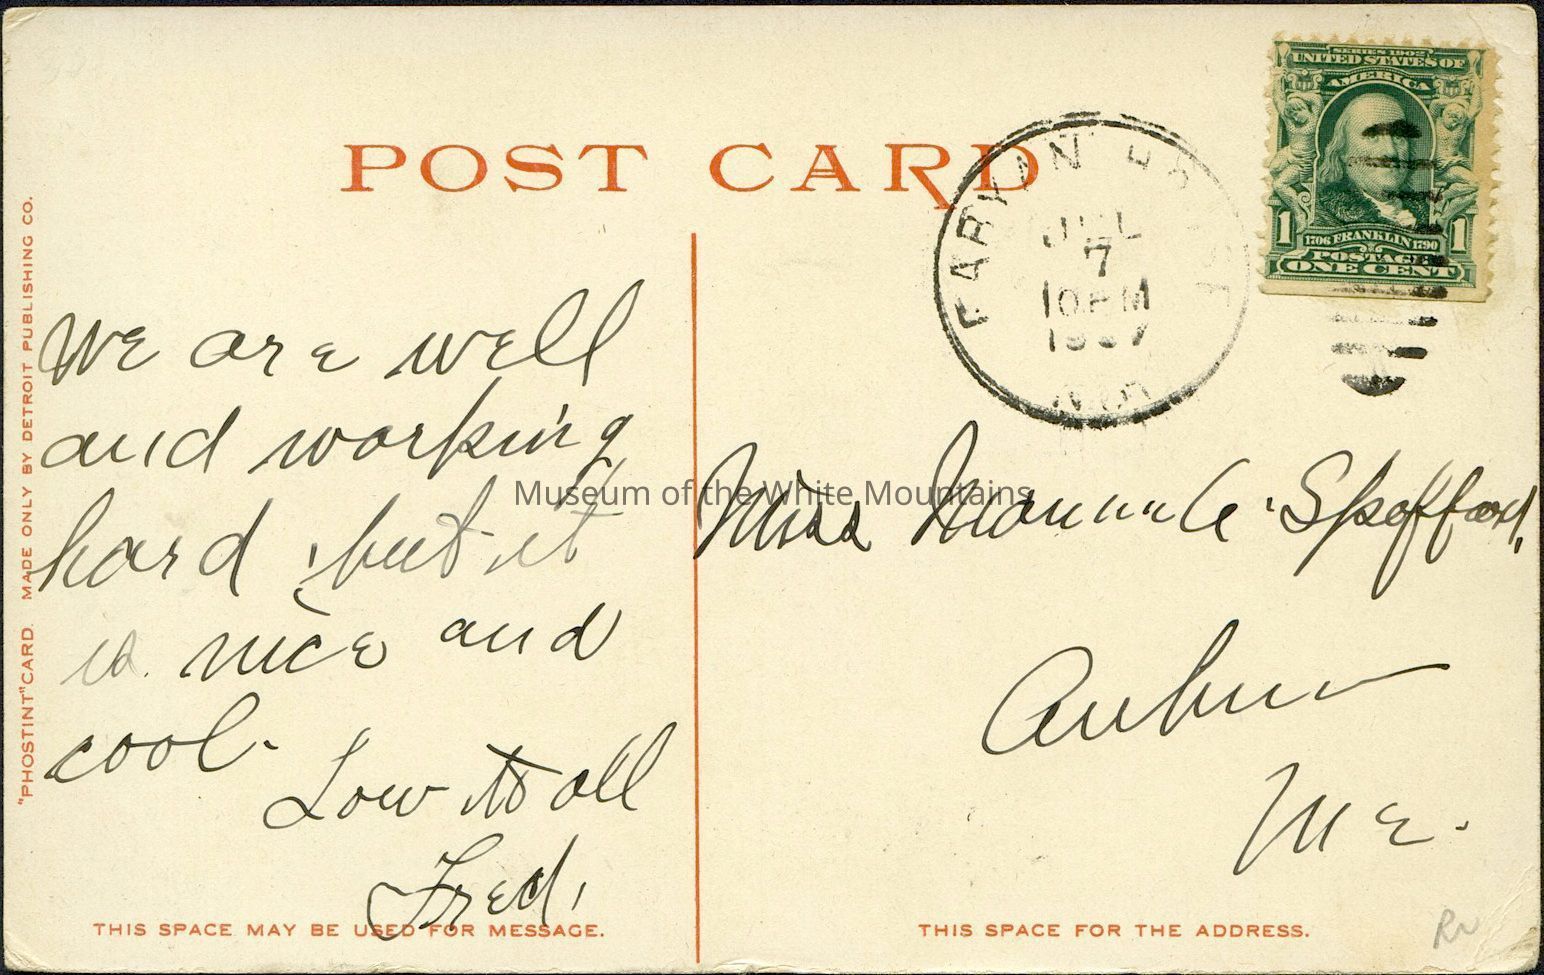 POST CARD
"PHOSTINT" CARD. MADE ONLY BY DETROIT PUBLISHING CO.
We are well
and working
hard, but it
is nice and
cool.
Love to all
Fred.
THIS SPACE MAY BE USED FOR MESSAGE.
SERIES 1902
UNITED STATES OF
AMERICA
1 1706 FRANKLIN 1790 1
POSTAGE
ONE CENT
FABYAN HOUSE
JUL
7
10 PM
1907
Miss Spofford,
Auburn
Me.
THIS SPACE FOR THE ADDRESS.
Museum of the White Mountains